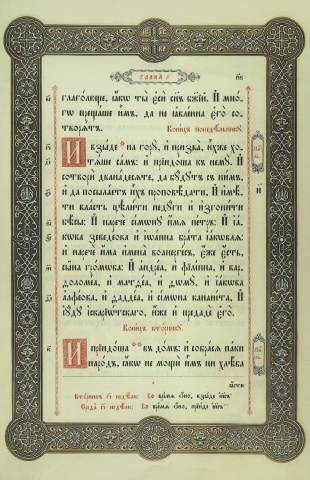 Глава́ г҃
глаго́люще, ꙗ҆́кѡ ты̀ є҆сѝ сн҃ъ бж҃їй. И҆ мно́-
гѡ преща́ше и҆̀мъ, да не ꙗ҆вле́на є҆го̀ со-
творѧ́тъ.
Коне́цъ понедѣ́льникꙋ
И҆ взы́де на го́рꙋ, и҆ призва̀, и҆̀хже хо-
тѧ́ше са́мъ: и҆ прїидо́ша къ немꙋ̀. И҆
сотворѝ двана́десѧте, да бꙋ́дꙋтъ съ ни́мъ,
и҆ да посыла́етъ и҆̀хъ проповѣ́дати, И҆ и҆мѣ́-
ти вла́сть цѣли́ти недꙋ́ги и҆ и҆згони́ти
бѣ́сы: И҆ наречѐ сі́мѡнꙋ и҆́мѧ пе́тръ: И҆ і҆а́-
кѡва зеведе́ова и҆ і҆ѡа́нна бра́та і҆а́кѡвлѧ:
и҆ наречѐ и҆́ма и҆мена̀ воанерге́съ, є҆́же є҆́сть,
сы̑на гро́мѡва: И҆ а҆ндре́а, и҆ фїлі́ппа, и҆ вар-
доломе́а, и҆ матѳе́а, и҆ ѳѡмꙋ̀, и҆ і҆а́кѡва
а҆лфе́ова, и҆ ѳадде́а, и҆ сі́мѡна канані́та, И҆
і҆ꙋ́дꙋ і҆скарїѡ́тскаго, и҆́же и҆ предадѐ є҆го̀.
Коне́цъ вто́рникꙋ
И҆ прїидо́ша въ до́мъ: и҆ собра́сѧ па́ки
наро́дъ, ꙗ҆́кѡ не мощѝ и҆̀мъ ни хлѣ́ба
ꙗ҆́сти
Вто́рникъ г҃і недѣ́ли: Во вре́мѧ ѻ҆́но, взы́де і҆и҃съ
Среда̀ г҃і недѣ́ли: Во вре́мѧ ѻ҆́но, прїи́де і҆и҃съ